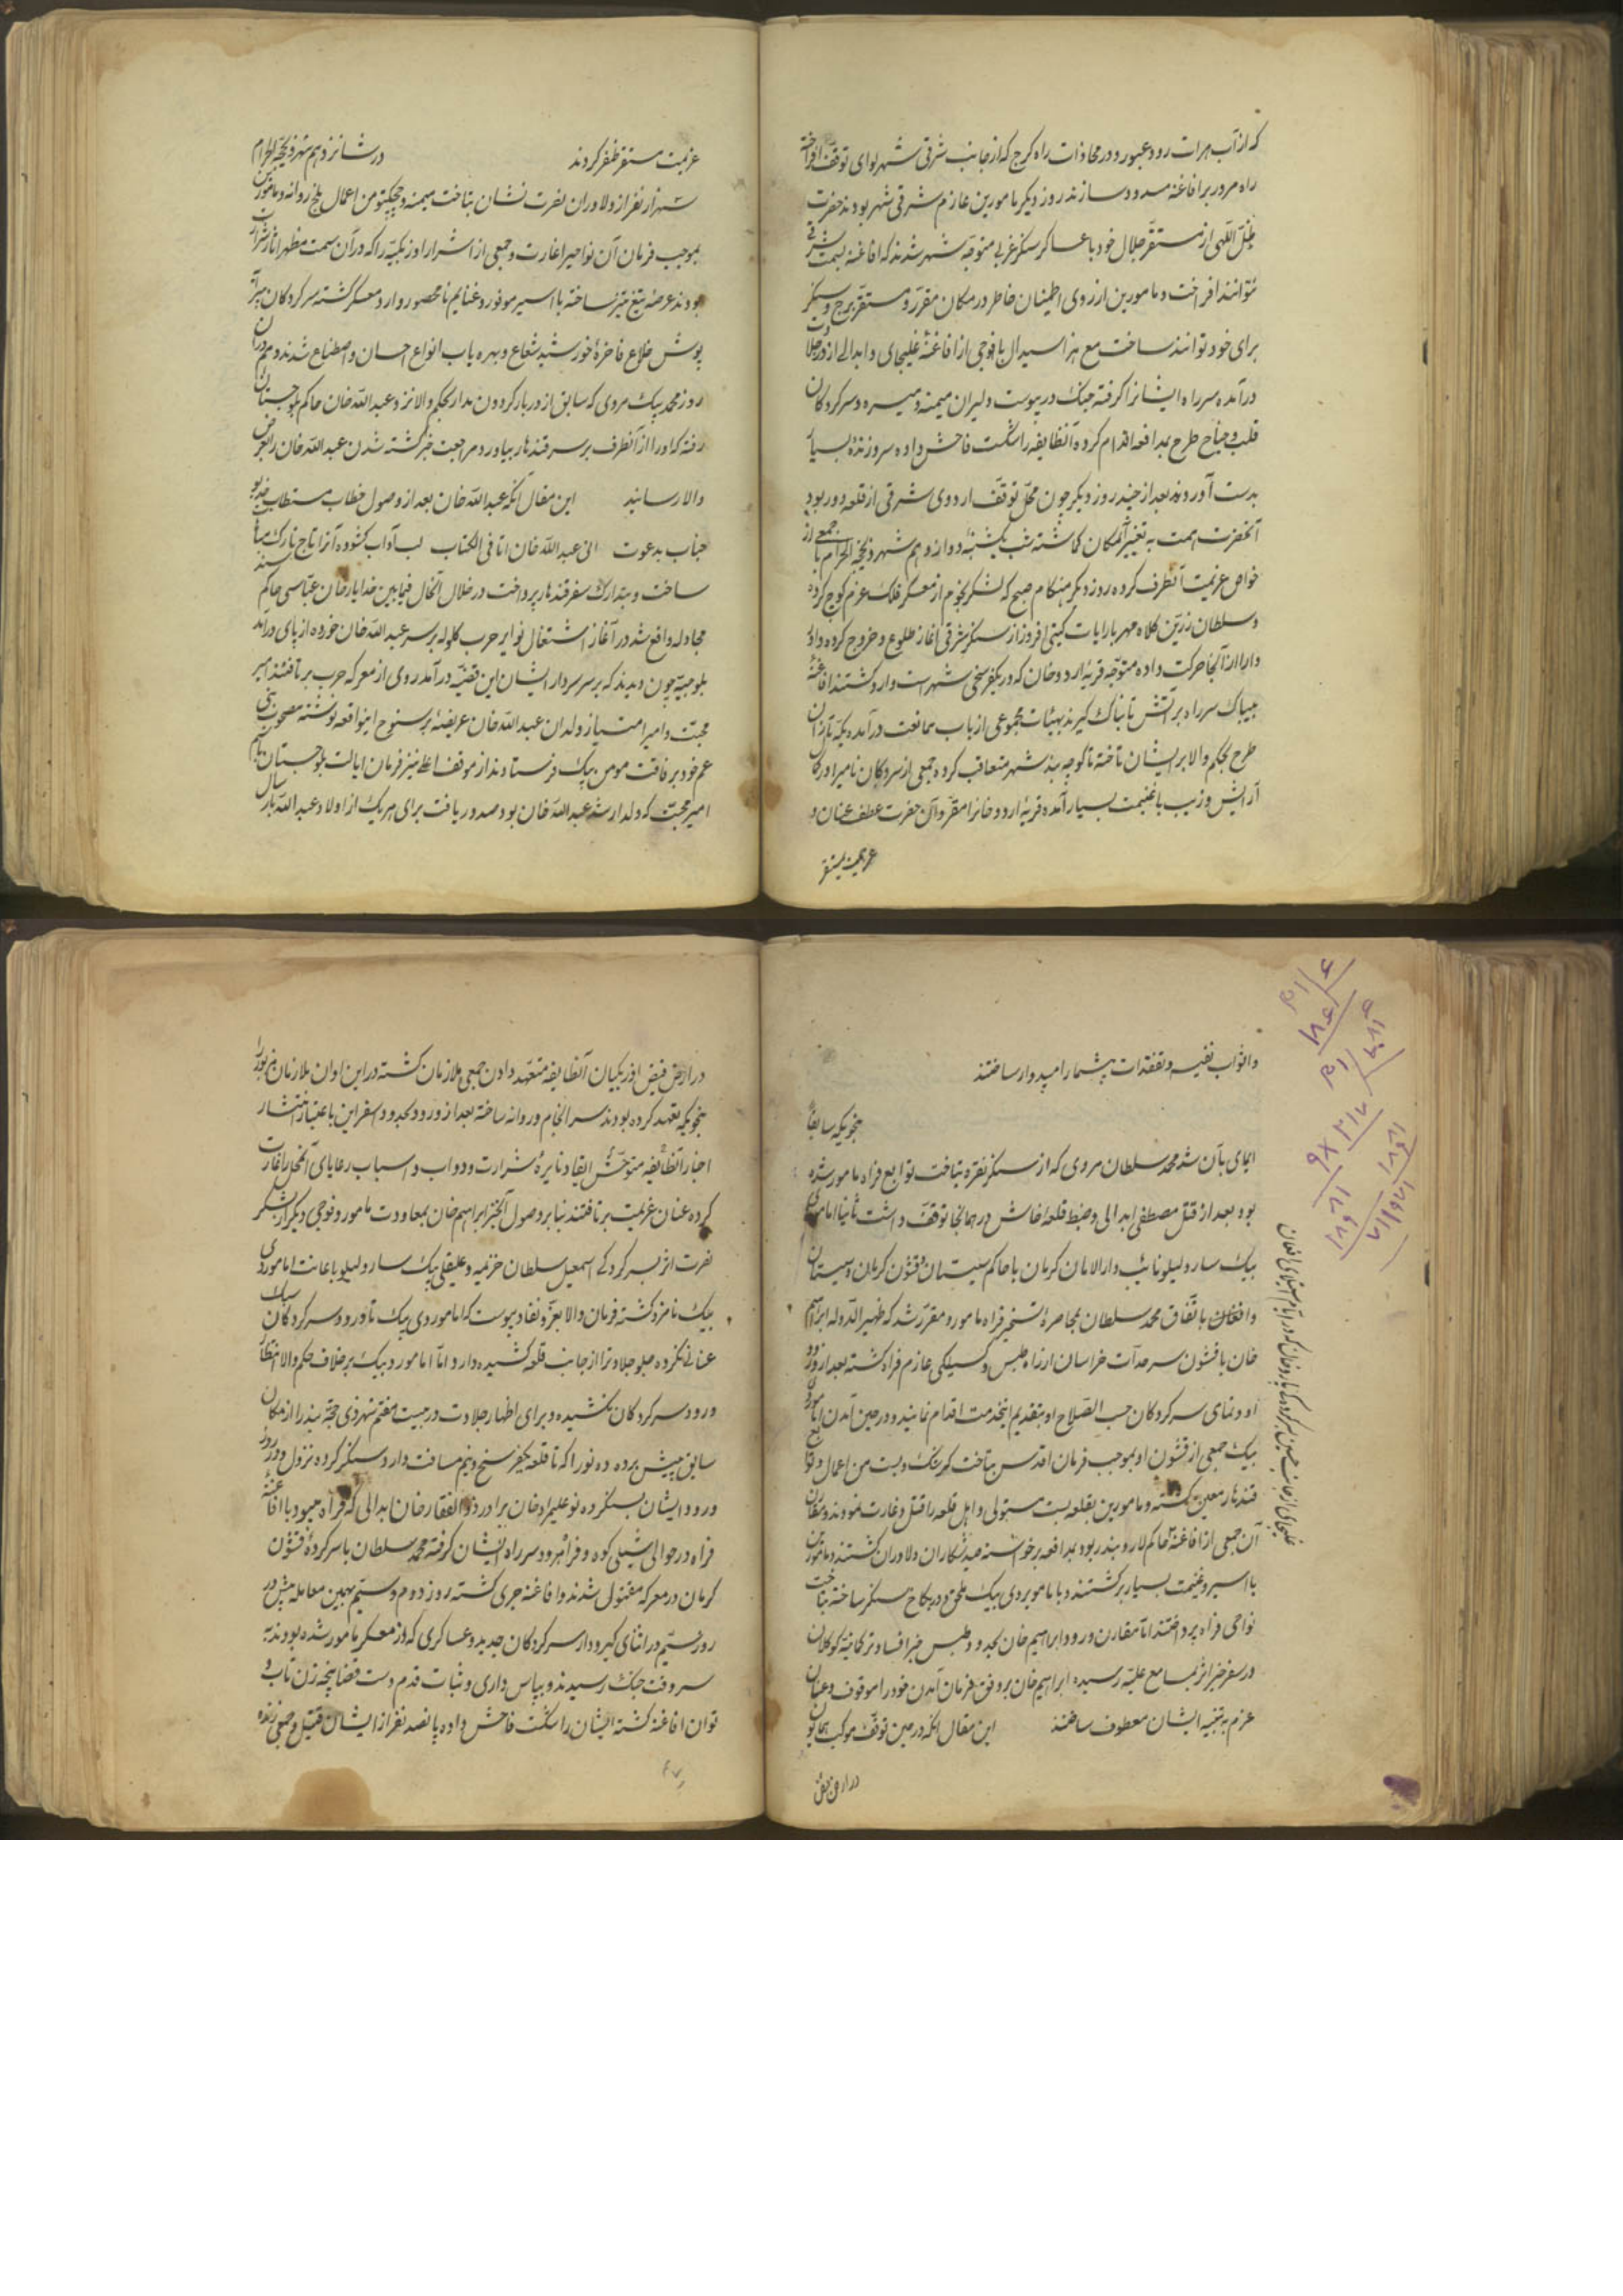 که از آب هرات رود عبور و در محاذات راه کرج که از جانب شرقی شهر لوای توقف افراخته
راه مرور بر افاغنه مسدود سازند روز دیگر مامورین عازم شرقی شهر بودند حضرت
ظل اللهی از مستقر جلال خود با عساکر سنکر غربی متوجه شهر شدند که افاغنه بسمت شرقی
نتوانند افراخت و مامورین از روی اطمینان خاطر در مکان مقرر و مستقر برج و سنکر
برای خود توانند ساخت مع هذا سیدال با فوجی از افاغنه غلیجای و ابدالی از در جلادت
درآمده سر راه ایشانرا کرفته جنک در پیوست و لیران میمنه و میسره و سرکردکان
قلب و جناح طرح بمدافعه اقدام کرده آنطایفه را شکست فاحش داده سر و زنده بسیار
بدست آوردند بعد از چند روز دیکر چون محل توقف اردوی شرقی از قلعه دور بود
آنحضرت همت به تغییر آنمکان کماشته شب یکشنبه دوازدهم شهر ذیحجه الحرام با جمعی از
خواص عزیمت آنطرف کرده روز دیکر هنکام صبح که لشکر نجوم از معسکر فلک عزم کوچ کرده
و سلطان زرین کلاه مهر با رایات کیتی افروز از سنکر شرقی آغاز طلوع و خروج کرده
دارا از آنجا حرکت داده متوجه قریه اردوخان که در یکفرسخی شهر است وارد کشتند افاغنه
بیباک سر راه بر آتش تابناک کیرند بهیئات مجموعی از باب ممانعت درآمده یکه تازان
طرح بحکم والا بر ایشان تاخته تا کوچه بند شهر متعاقب کرده جمعی از سرکردکان نامی را
آرایش و زیب با غنیمت بسیار آمده قریه اردوخانرا مقر و آن حضرت عطف عنان و
عزیمت بمستقر
عزیمت بمستقر ظفر کردند در شانزدهم شهر ذیحجه الحرام
سه هزار نفر از دلاوران نصرت نشان بتاخت میمنه و چیچکتو من اعمال بلخ روانه و مامورین
بموجب فرمان آن نواحیرا غارت و جمعی از اشرار اوزبکیه را که در آن سمت مظهر آثار شرارت
بودند عرضه تیغ تیز ساخته با اسیر موفور و غنایم نامحصور وارد معسکر کشته سرکردکان
پوش خلاع فاخره خورشید شعاع و بهره یاب انواع احسان و اصطناع شدند و هم در آن
روز محمد بیک مروی که سابق از دربار کردون مدار بحکم والا نزد عبدالله خان حاکم بلوچستان
رفته که او را از آنطرف بر سر قندهار بیاورد مراجعت خبر کشته شدن عبدالله خان را بعرض
والا رسانید این مقال آنکه عبدالله خان بعد از وصول خطاب مستطاب خدیو
جناب بدعوت انی عبدالله خان اتانی الکتاب لب آداب کشوده آنرا تاج تارک
ساخت و بتدارک سفر قندهار پرداخت در خلال آنحال فیمابین خدایار خان عباسی حاکم سند
مجادله واقع شد در آغاز اشتعال نوایر حرب کلوله بر سر عبدالله خان خورده از پای درآمد
بلوچیه چون دیدند که بر سر سردار ایشان این قضیه درآمد روی از معرکه حرب برتافتند امیر
محبت و امیر امتیاز ولدان عبدالله خان عریضه بر سنوح اینواقعه نوشته مصحوب
عم خود برفاقت مومن بیک فرستادند از موقف اعلی نیز فرمان ایالت بلوچستان بنام
امیر محبت که ولد ارشد عبدالله خان بود صدور یافت برای هر یک از اولاد عبدالله
و اثواب نفیسه و تفقدات بیشمار امیدوار ساختند
بنحویکه سابقا
ایمای بآن شد محمد سلطان مروی که از سنکر نقره بتاخت توابع فراه مامور شده
بود بعد از قتل مصطفی ابدالی و ضبط قلعه خاش در همانجا توقف داشت ثانیا امامویردی
بیک سارولیلو نایب دارالامان کرمان با حاکم سیستان و قشون کرمان و سیستان
و افغان باتفاق محمد سلطان بمحاصره تسخیر فراه مامور و مقرر شد که ظهیرالدوله ابراهیم
خان با قشون سرحدات خراسان از راه طبس و کسیلکی عازم فراه کشته بعد از ورود
او روسای سرکردکان حسب الصلاح او بتقدیم اینخدمت اقدام نمایند و در حین آمدن امامویردی
بیک جمعی از قشون او بموجب فرمان اقدس بتاخت کرشک و بست من اعمال و توابع
قندهار معین کشته و مامورین بقلعه بست مستولی و اهل قلعه را قتل و غارت نمودند و مقارن
آن جمعی از افاغنه حاکم لار و بندر بود بمدافعه برخواسته صید شکاران دلاوران کشتند و مامورین
با اسیر و غنیمت بسیار برکشتند و با امامویردی بیک ملحق و در بکاح سنکر ساخته بتاخت
نواحی فراه پرداختند اما مقارن ورود ابراهیم خان بحدود طبس خبر افساد ترکمانیه کوکلان
در سفر خیر اثر بمسامع علیه رسیده ابراهیم خان بر وفق فرمان آمدن خود را موقوف و عنان
عزم به تنبیه ایشان معطوف ساختند این مقال آنکه در حین توقف موکب همایون
در ارض فیض
غلیجای از جانب حسین سرکرده کی یار و خان که در ایام استیلای افغان
در ارض فیض اوزبکیان آنطایفه متعهد دادن جمعی ملازمان کشته در این اوان ملازمان مزبور را
بنحویکه تعهد کرده بودند سرانجام و روانه ساخته بعد از ورود بحدود اسفراین باعتبار انتشار
اخبار آنطایفه متوحش ایقاد نایره شرارت و دواب و اسباب رعایای آنمحل را غارت
کرده عنان عزیمت برتافتند بنابر وصول آنخبر ابراهیم خان بمعاودت مامور و فوجی دیکر از لشکر
نصرت اثر بسرکردکی اسمعیل سلطان خزیمه و علیقلی بیک سارولیلو باعانت امامویردی
بیک نامزد کشته فرمان والا بعز نفاذ پیوست که امامویردی بیک تا ورود سرکردکان سبک
عنانی نکرده جلو جلادترا از جانب قلعه کشیده دارد اما امامویردی بیک بر خلاف حکم والا انتظار
ورود سرکردکان نکشیده و برای اظهار جلادت در بیست هفتم شهر ذی حجه بند را از مکان
سابق پیش برده ده نو را که تا قلعه یکفرسخ و نیم مسافت دارد سنکر کرده نزول و در روز
ورود ایشان بسنکر ده نو علیمردان خان برادر ذوالفقار خان ابدالی که فراه میبود با افاغنه
فراه در حوالی شیلی کوه و فراه رود سر راه ایشان کرفته محمد سلطان با سرکرده قشون
کرمان در معرکه مقتول شدند و افاغنه جری کشته روز دوم و سیم بهمین معامله پیش
روز سیم در اثنای کیر و دار سرکردکان جدید و عساکری که از معسکر مامور شده بودند به
سر وقت جنک رسیدند و بپاس داری و ثبات قدم دست قضا پنجه زن تاب و
توان افاغنه کشته ایشان را شکست فاحش داده پانصد نفر از ایشان قتیل و جمعی زنده